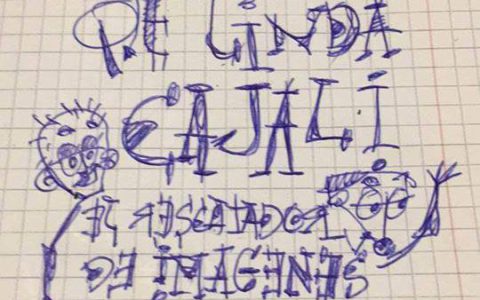 RE LINDA
CAJALI
EL RESCATADOR
DE IMAGENES